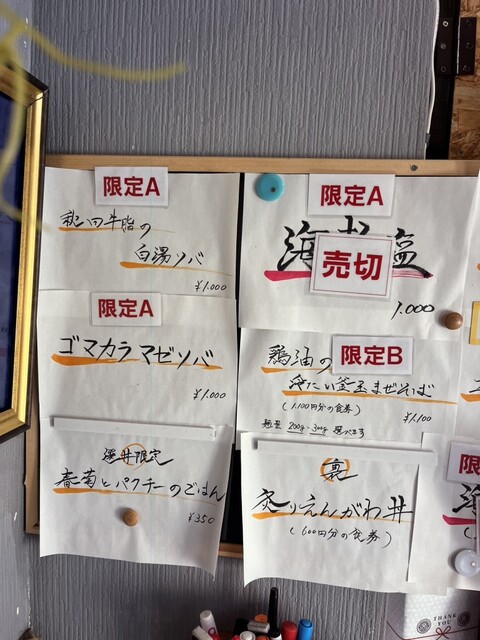 限定A
秋田牛脂の
白湯ソバ
¥1.000
限定A
ゴマカラマゼソバ
¥1.000
限定
春菊とパクチーのごはん
¥350
限定A
海 塩
売切
1.000
限定B
鶏油の
冷たい釜玉まぜそば
(1.100円分の食券)
¥1.100
麺量 200g・300g 選べます
裏
炙りえんがわ丼
(600円分の食券)
限
THANK YOU